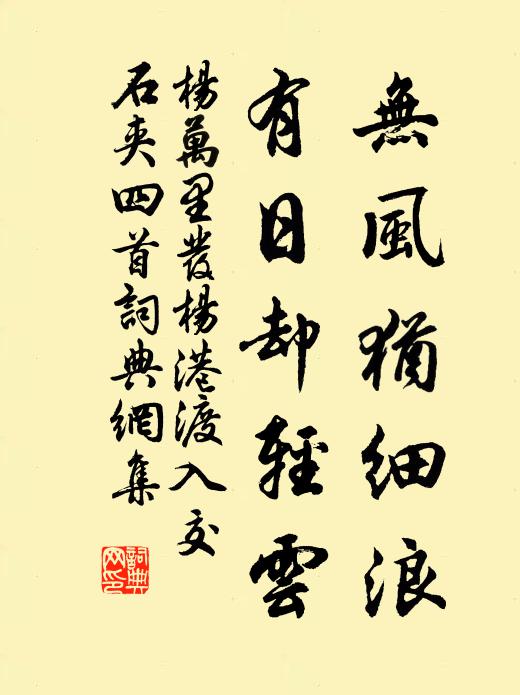 無風猶細浪
有日却輕雲
楊萬里發楊港渡入交
石夾四首詞典網集
詞典網印